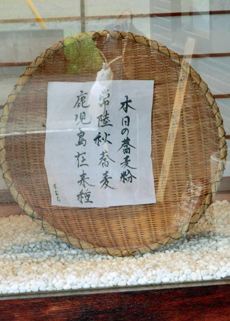 本日の蕎麦粉
常陸秋蕎麦
鹿児島在来種